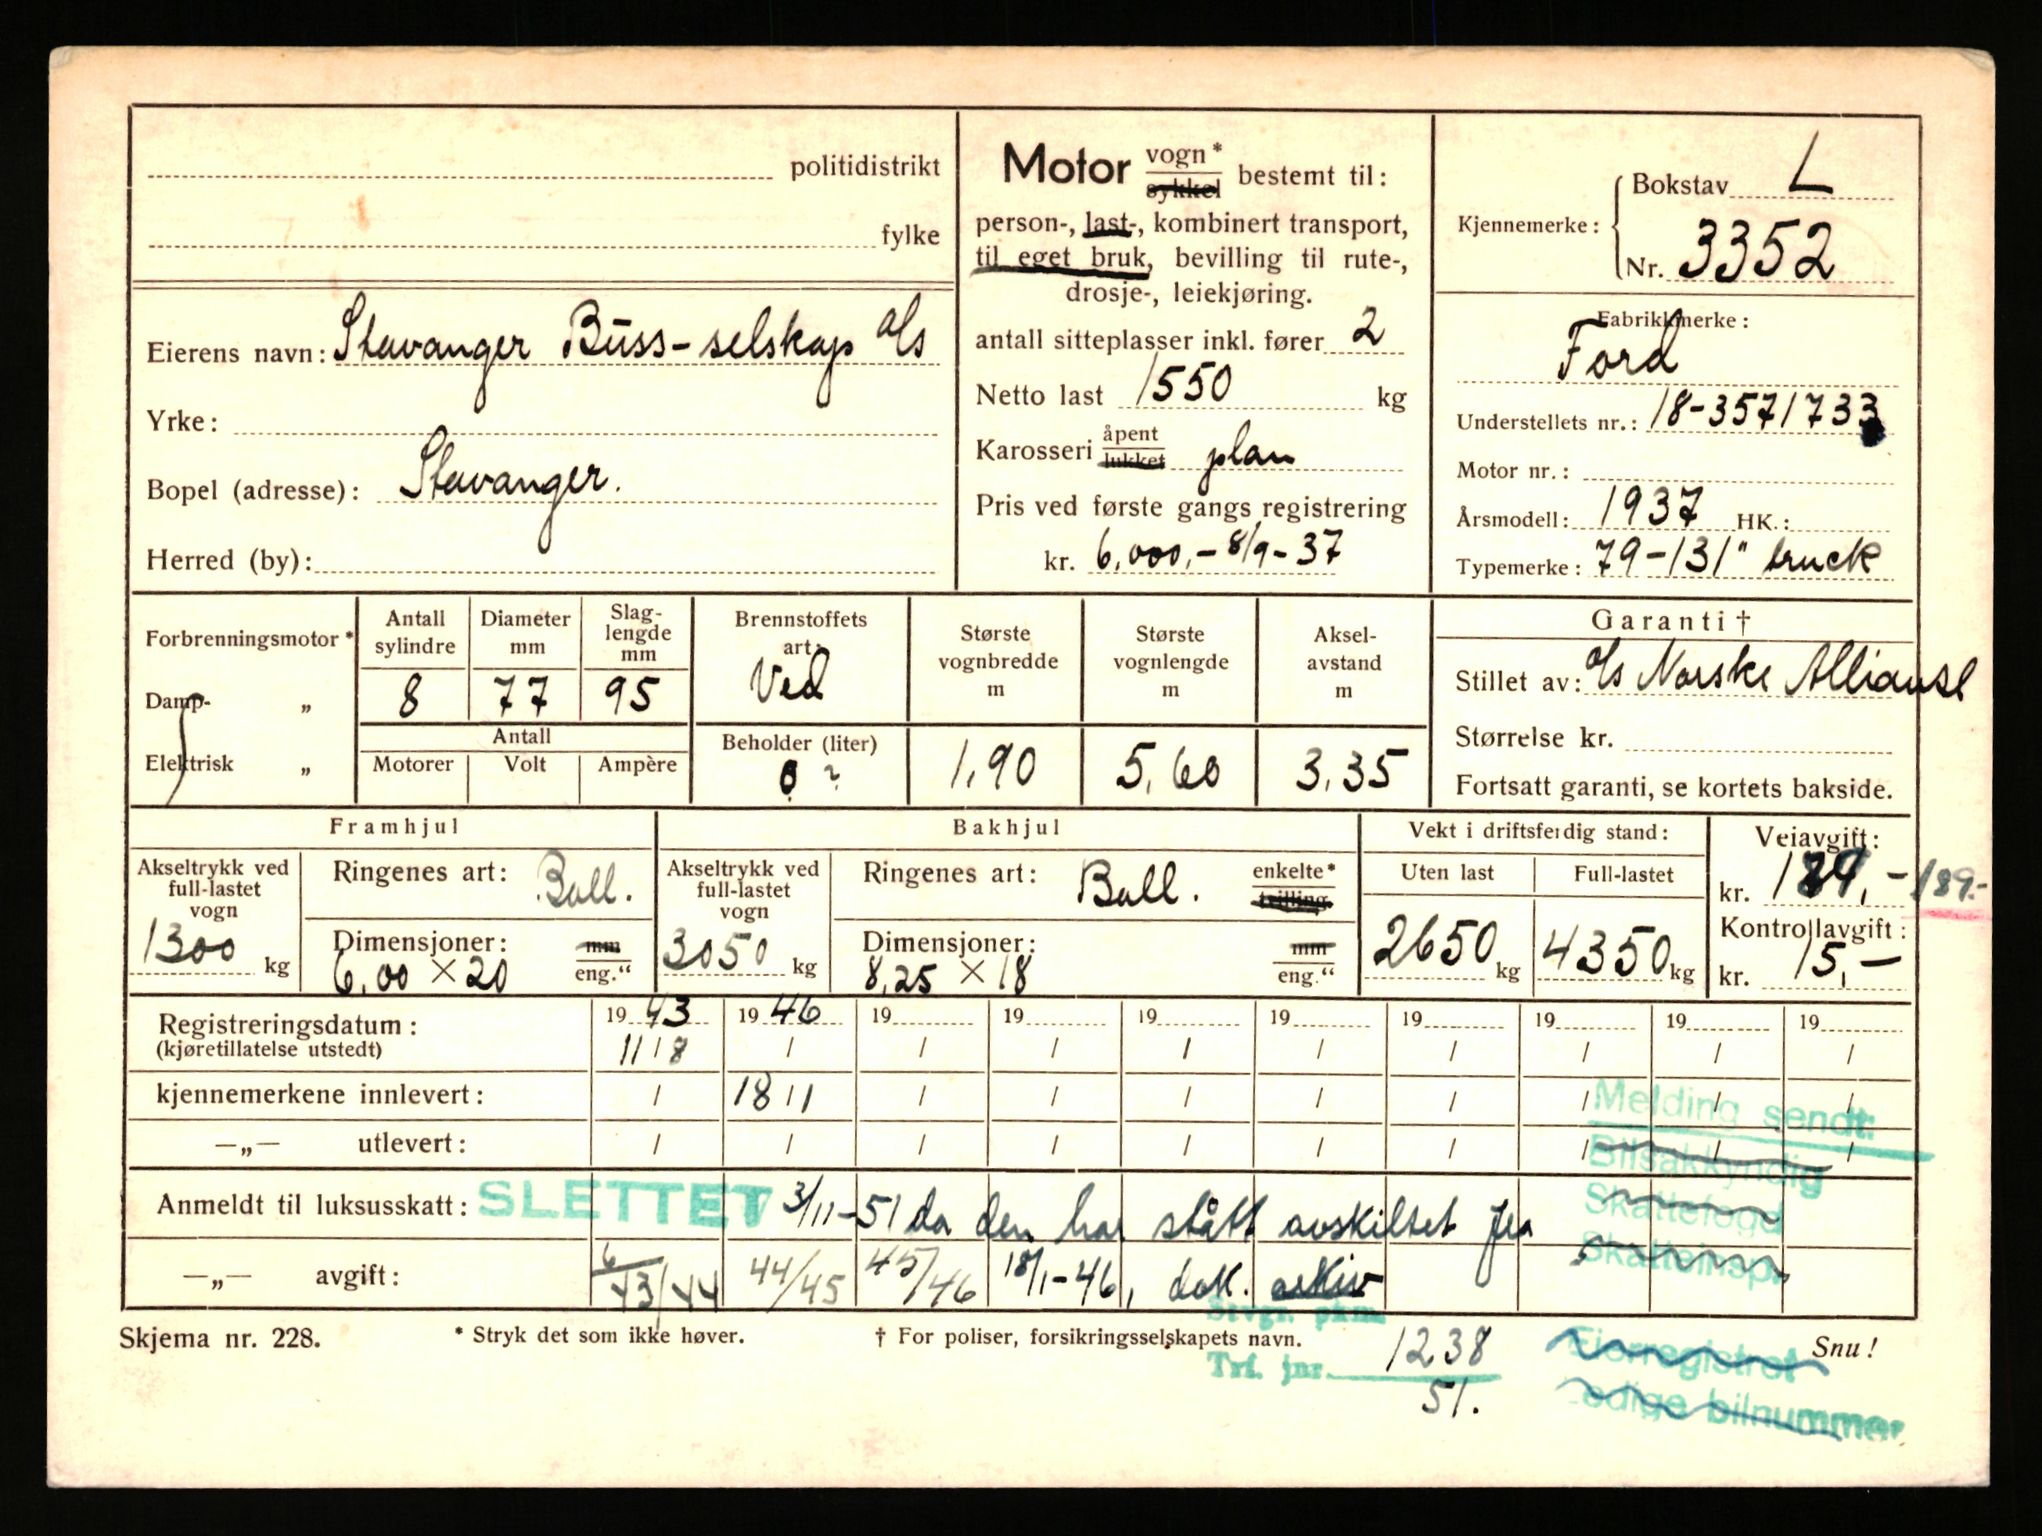 politidistrikt
fylke
Eierens navn: Stavanger Buss-selskap A/s
Yrke:
Bopel (adresse): Stavanger.
Herred (by):
Motor vogn* sykkel bestemt til:
person-, last-, kombinert transport,
til eget bruk, bevilling til rute-,
drosje-, leiekjøring.
antall sitteplasser inkl. fører 2
Netto last 1550 kg
Karosseri åpent lukket plan
Pris ved første gangs registrering
kr. 6.000,- 8/9-37
Kjennemerke: Bokstav L
Nr. 3352
Fabrikkmerke:
Ford
Understellets nr.: 18-3571733
Motor nr.:
Årsmodell: 1937 HK.:
Typemerke: 79-131" truck
Forbrenningsmotor*
Damp- „
Elektrisk „
Antall sylindre 8
Diameter mm 77
Slag-lengde mm 95
Antall
Motorer Volt Ampère
Brennstoffets art: Ved
Beholder (liter) 0 ?
Største vognbredde m 1,90
Største vognlengde m 5,60
Aksel-avstand m 3,35
Garanti †
Stillet av: A/s Norske Alliance
Størrelse kr.
Fortsatt garanti, se kortets bakside.
Framhjul
Akseltrykk ved full-lastet vogn 1300 kg
Ringenes art: Ball.
Dimensjoner: mm eng."
6,00 × 20
Bakhjul
Akseltrykk ved full-lastet vogn 3050 kg
Ringenes art: Ball. enkelte* tvilling
Dimensjoner: mm eng."
8,25 × 18
Vekt i driftsferdig stand:
Uten last 2650 kg
Full-lastet 4350 kg
Veiavgift:
kr. 189,- 189.-
Kontrollavgift:
kr. 15,-
Registreringsdatum: 1943 1946 19 19 19 19 19 19 19 19
(kjøretillatelse utstedt) 11/8 / / / / / / / / /
kjennemerkene innlevert: / 18/1 / / / / / / / /
—„— utlevert: / / / / / / / / / /
Melding sendt:
Bilsakkyndig
Skattefogd
Skatteinsp.
Anmeldt til luksusskatt: SLETTET 3/11-51 da den har stått avskiltet fra
—„— avgift: 43/44 44/45 45/46 18/1-46, dok. arkiv
Skjema nr. 228. * Stryk det som ikke høver. † For poliser, forsikringsselskapets navn. Snu!
Stvgr. pkm.
Trf. jnr. 1238
51.
Eierregistret
Ledige bilnummer